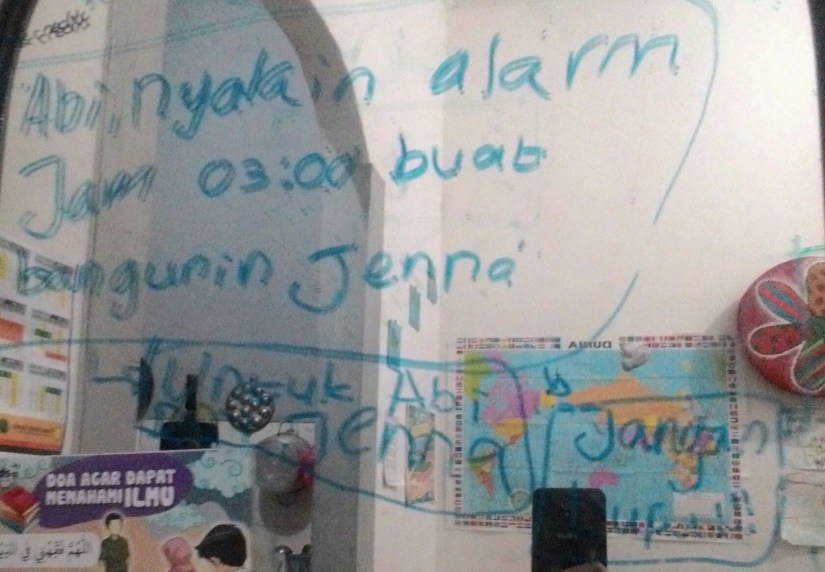 Abi, nyalain alarm
Jam 03:00 buat
bangunin Jenna
untuk Abi
Jenna
Jangan
DUNIA
DOA AGAR DAPAT
MEMAHAMI ILMU